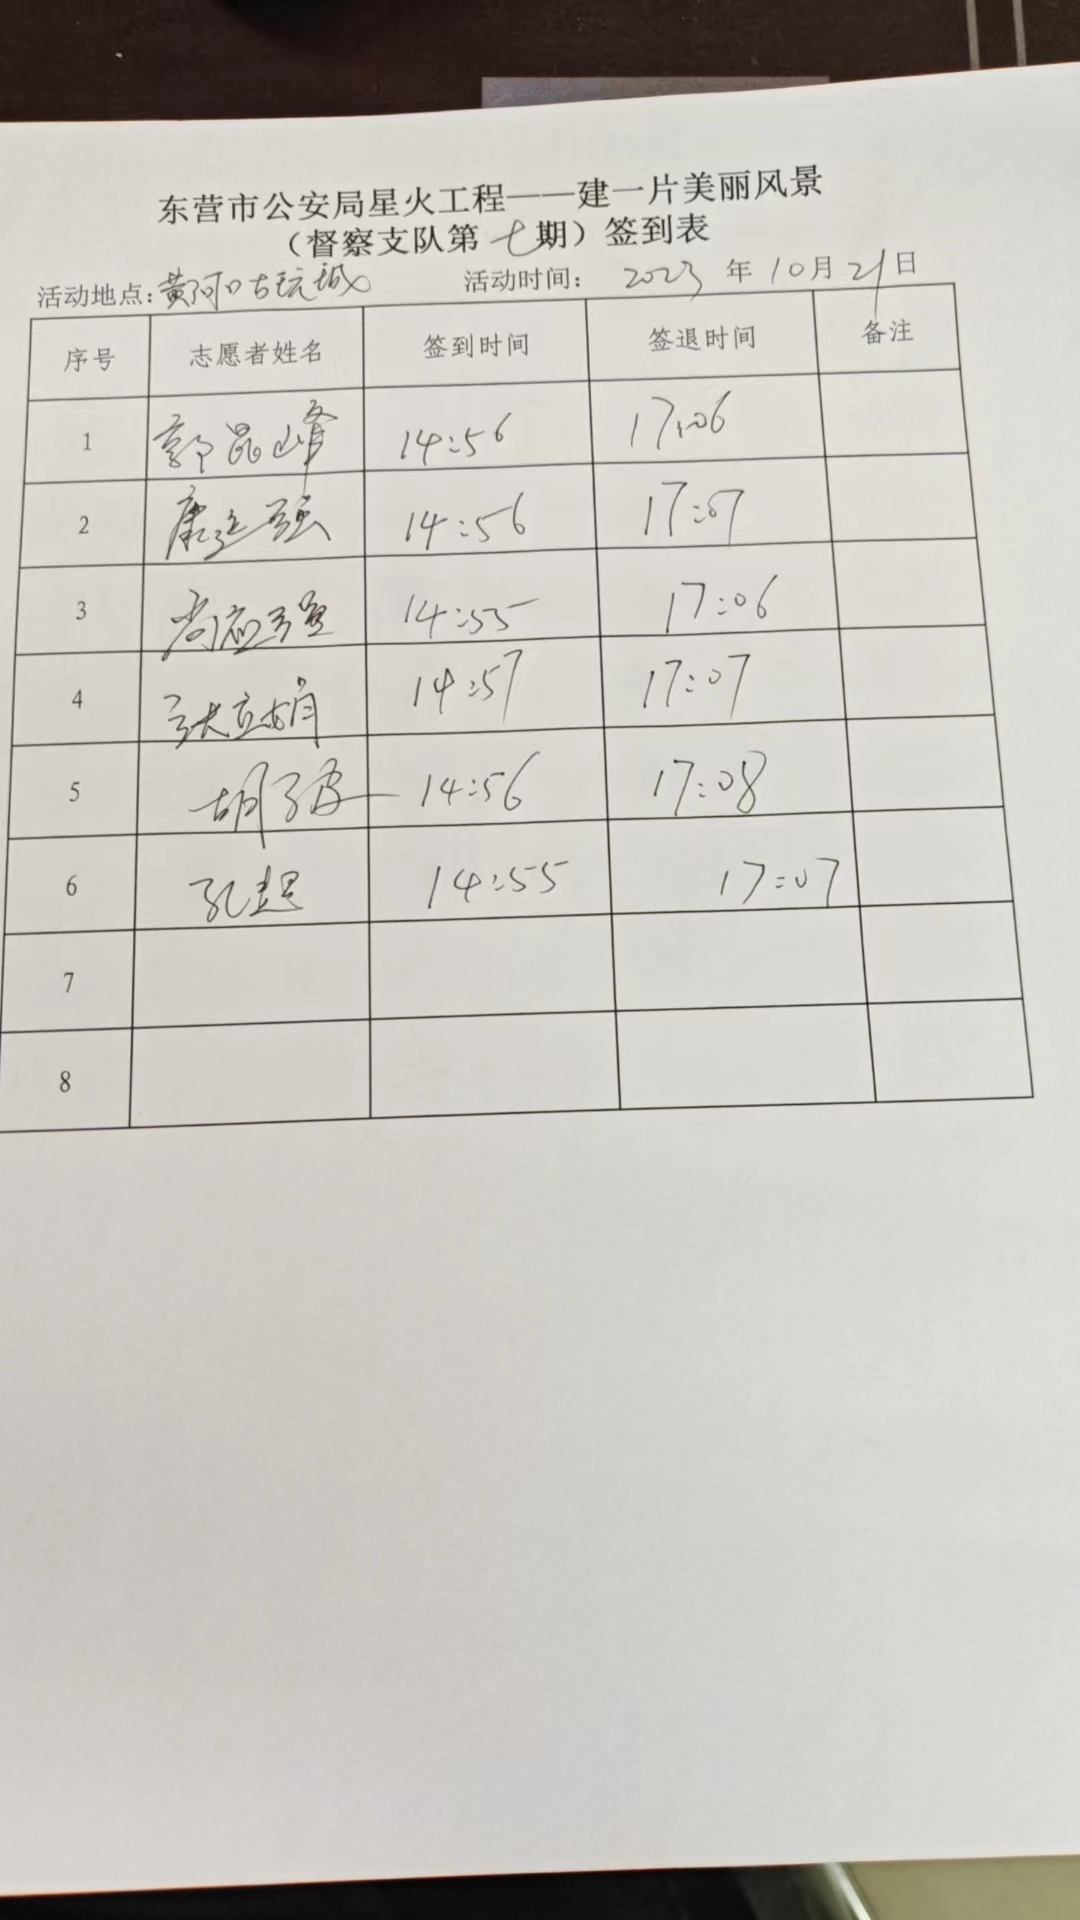 东营市公安局星火工程——建一片美丽风景
（督察支队第七期）签到表
活动地点：黄河口古玩城 活动时间： 2023 年 10 月 21 日
序号 志愿者姓名 签到时间 签退时间 备注
1 郭昆峰 14:56 17:06
2 康延强 14:56 17:07
3 尚应强 14:55 17:06
4 张立娟 14:57 17:07
5 胡子 14:56 17:08
6 孔超 14:55 17:07
7
8